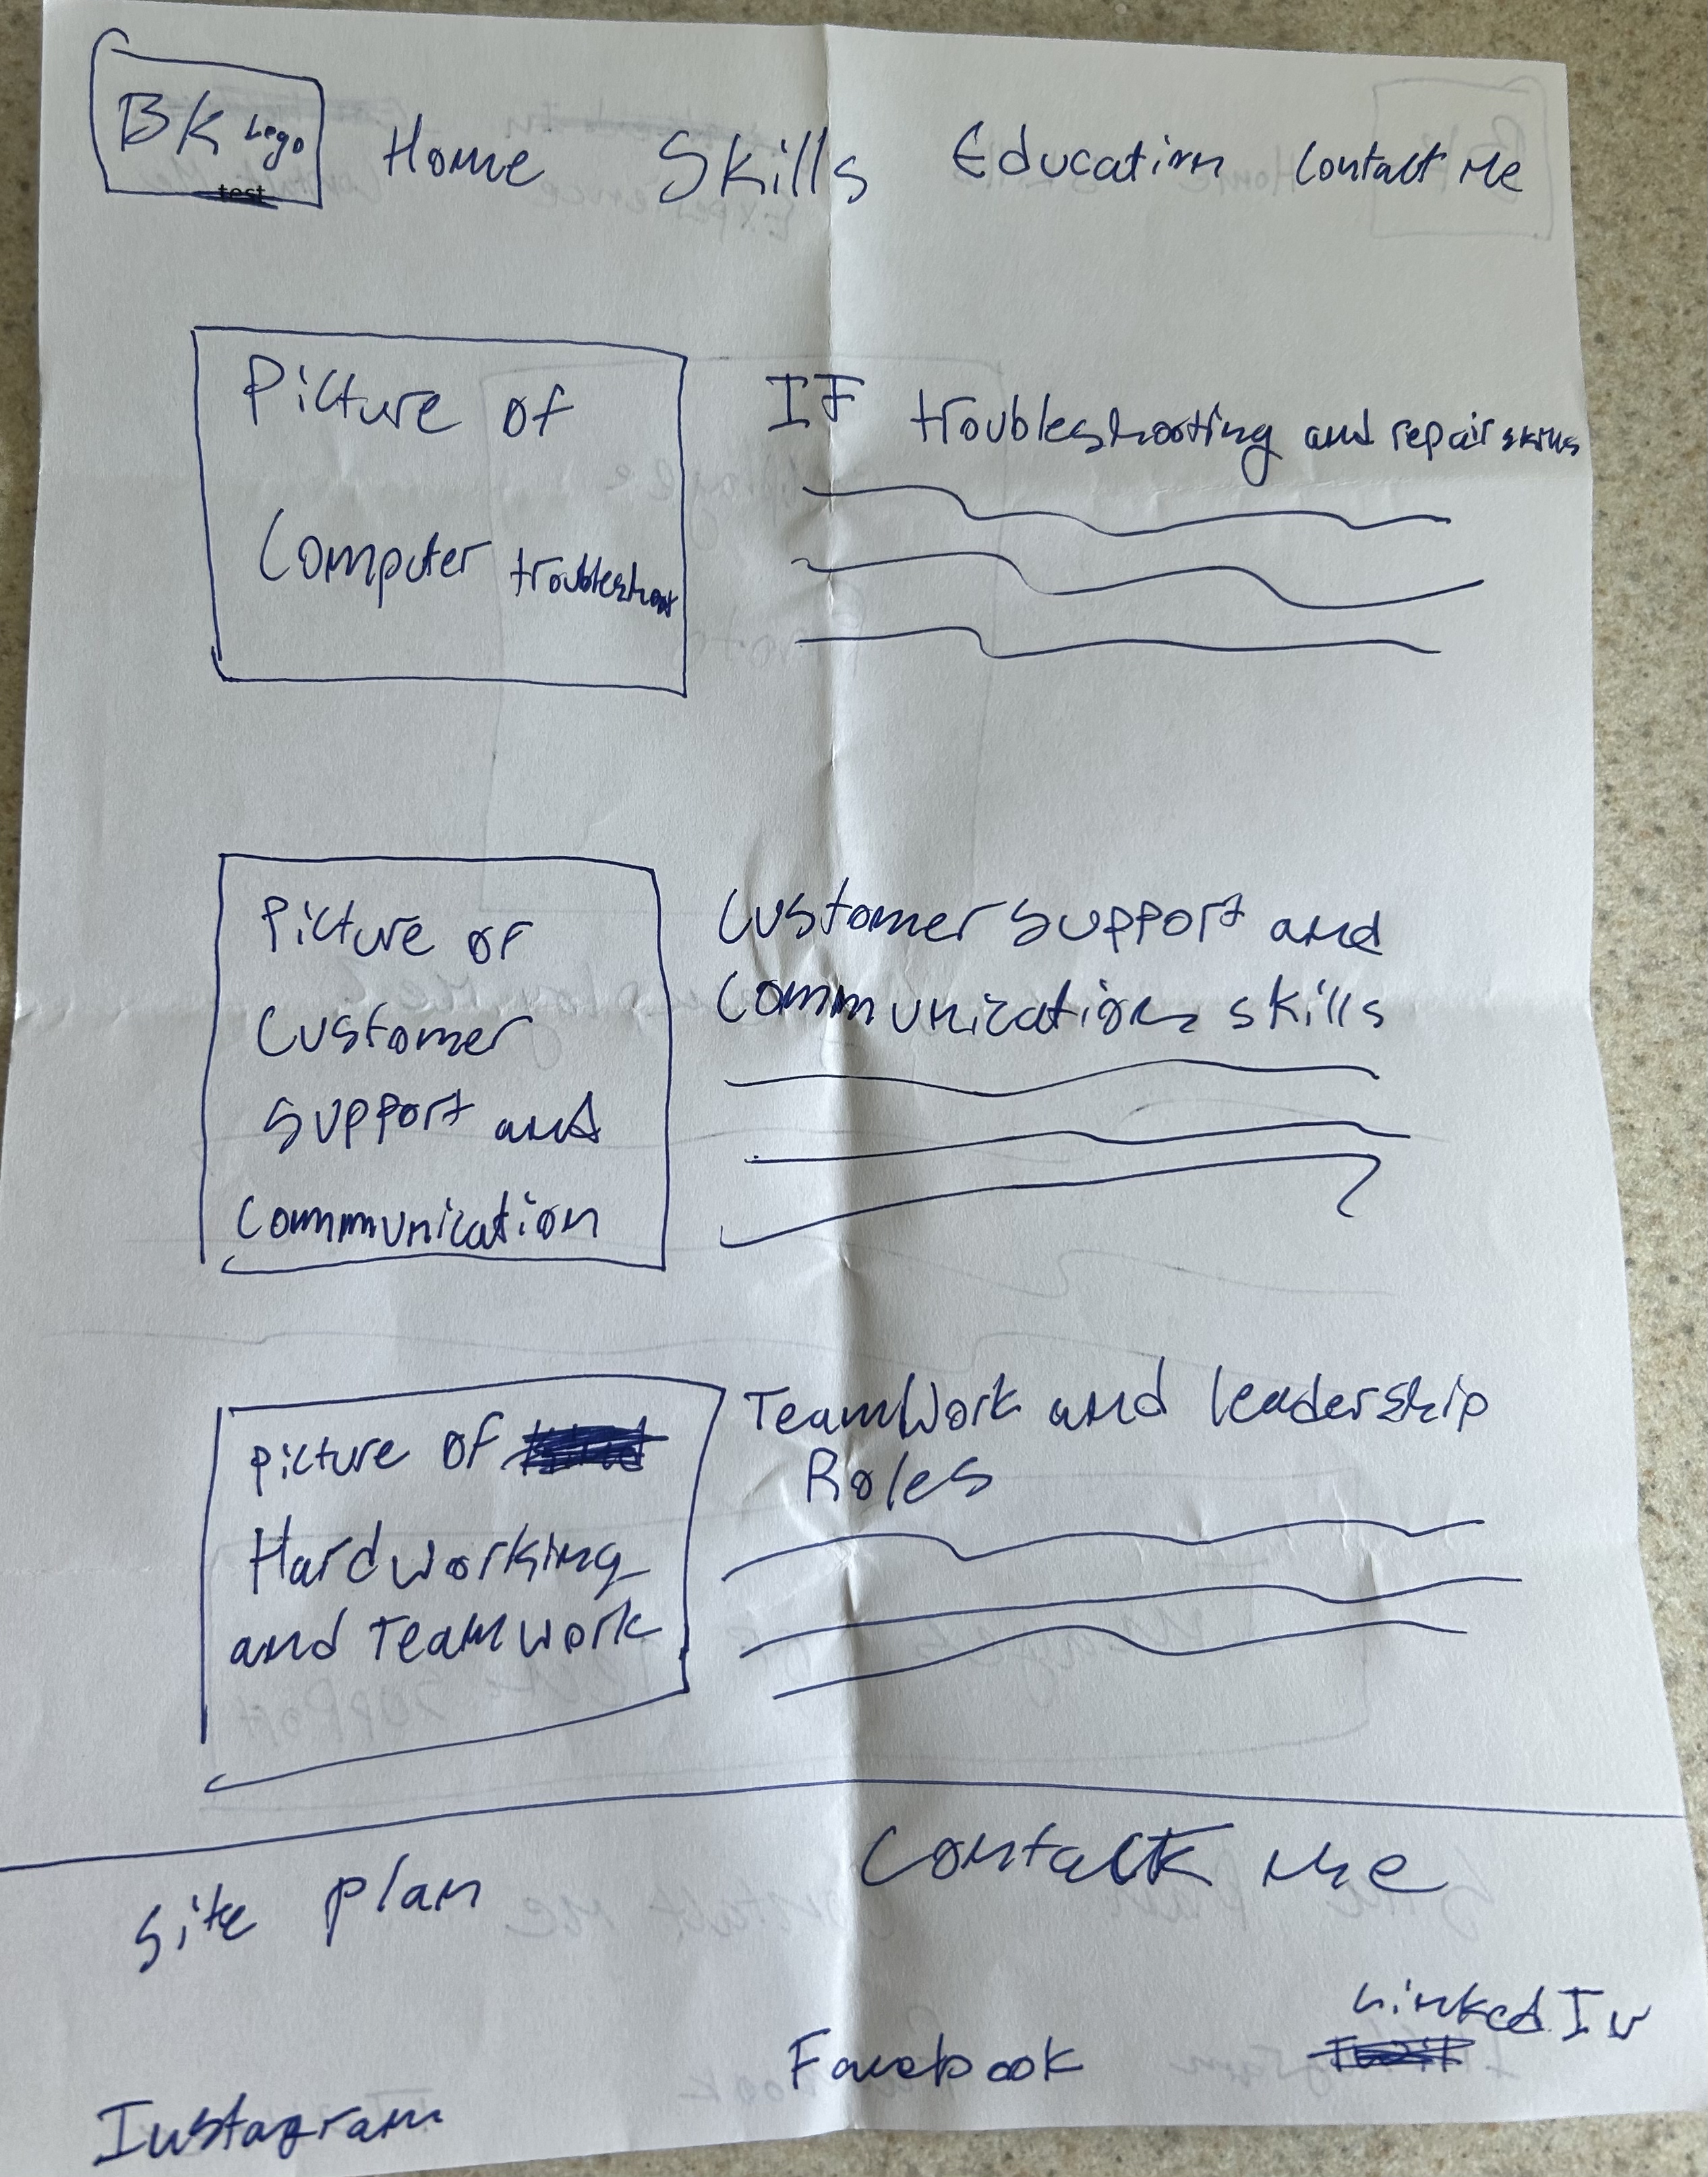 BK Logo
test
Home Skills Education Contact Me
Picture of
Computer troubleshoot
IF troubleshooting and repair skills
Picture of
Customer
Support and
Communication
Customer Support and
Communications skills
picture of
Hardworking
and Teamwork
TeamWork and leadership
Roles
Site plan
Contact Me
LinkedIn
Facebook
Instagram